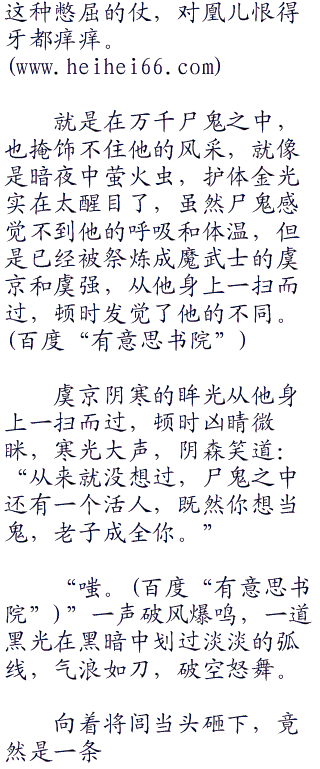 这种憋屈的仗，对凰儿恨得
牙都痒痒。
(www.heihei66.com)
就是在万千尸鬼之中，
也掩饰不住他的风采，就像
是暗夜中萤火虫，护体金光
实在太醒目了，虽然尸鬼感
觉不到他的呼吸和体温，但
是已经被祭炼成魔武士的虞
京和虞强，从他身上一扫而
过，顿时发觉了他的不同。
(百度“有意思书院”)
虞京阴寒的眸光从他身
上一扫而过，顿时凶晴微
眯，寒光大声，阴森笑道：
“从来就没想过，尸鬼之中
还有一个活人，既然你想当
鬼，老子成全你。”
“嗤。(百度“有意思书
院”)”一声破风爆鸣，一道
黑光在黑暗中划过淡淡的弧
线，气浪如刀，破空怒舞。
向着将闾当头砸下，竟
然是一条